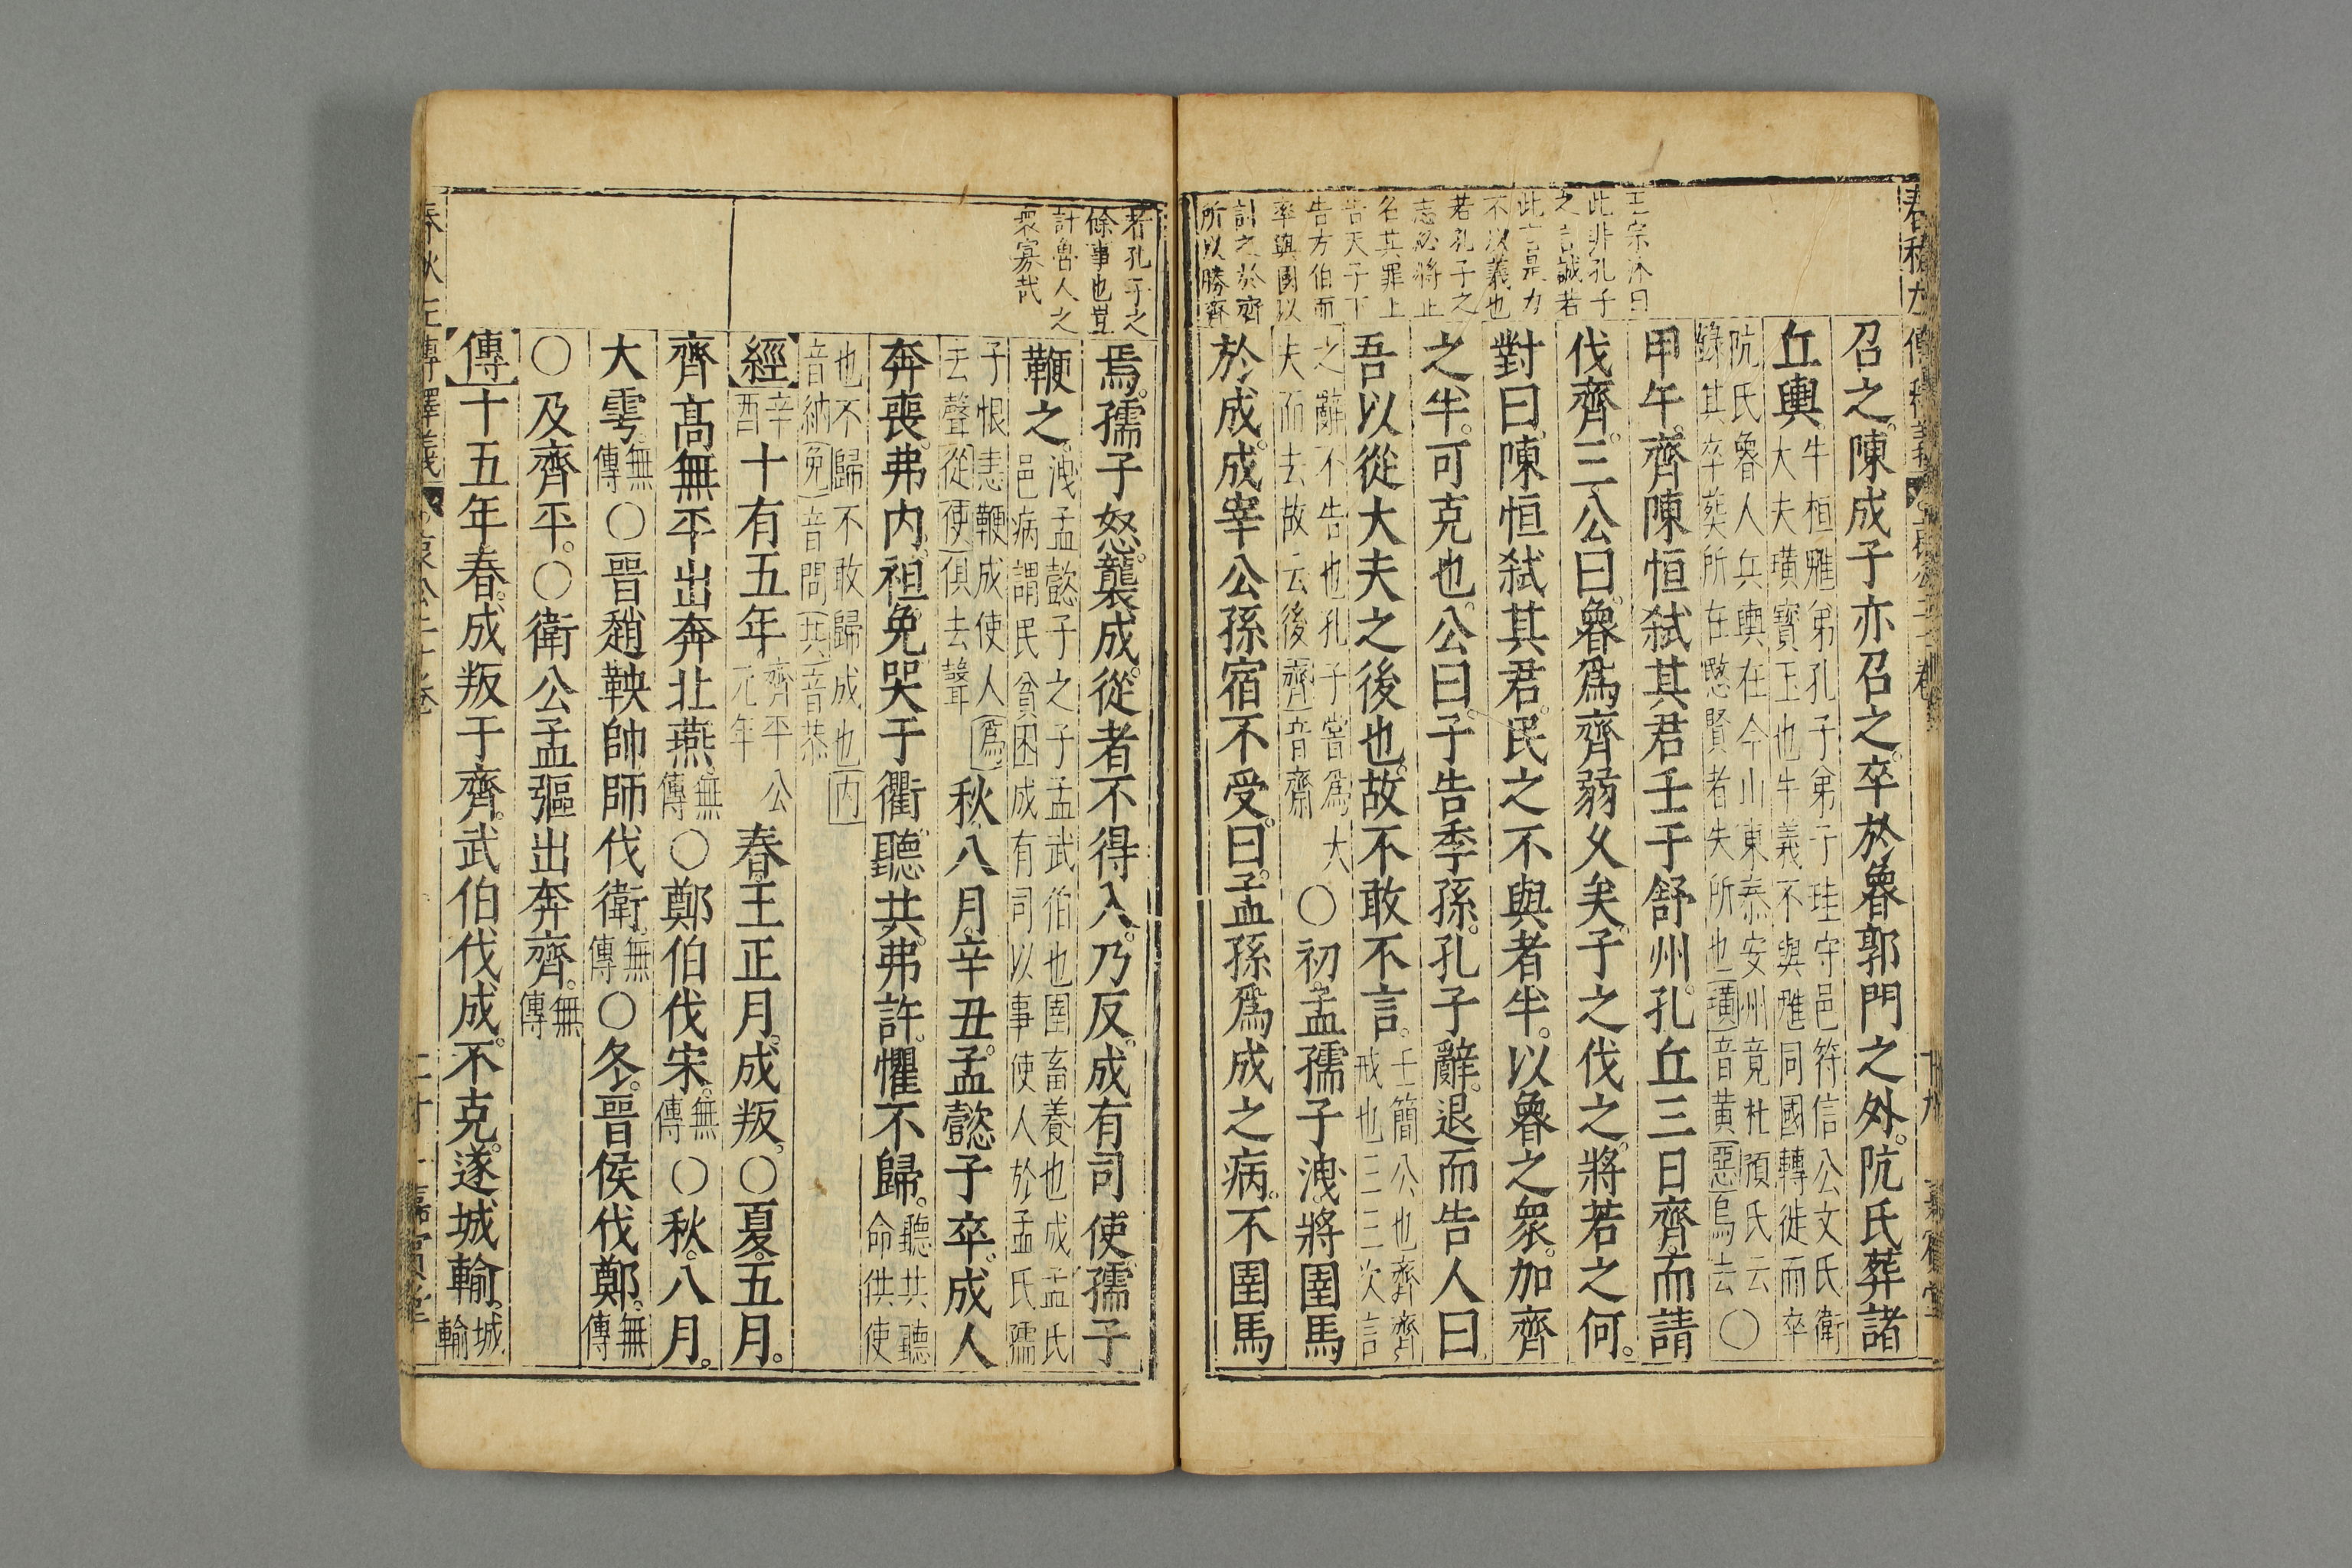 王宗沐曰
此非孔子
之言誠若
此言是力
不以義也
若孔子之
志必將正
名其罪上
告天子下
告方伯而
率與國以
計之於齊
所以勝齊
召之陳成子亦召之。卒於魯郭門之外。阬氏葬諸
丘輿。牛桓魋弟孔子弟子珪守邑符信公文氏衛
大夫璜寶玉也牛義不與魋同國轉徙而卒
阬氏魯人兵輿在今山東泰安州竟杜預氏云
錄其卒葬所在愍賢者失所也璜音黃惡烏去○
甲午。齊陳恒弒其君壬于舒州。孔丘三日齊。而請
伐齊。三公曰。魯爲齊弱乆矣。子之伐之。將若之何。
對曰。陳恒弒其君。民之不與者半。以魯之衆。加齊
之半。可克也。公曰。子告季孫。孔子辭。退而告人曰
吾以從大夫之後也。故不敢不言。壬簡公也齊齊
戒也三三次言
之辭不告也孔子嘗爲大
夫而去故云後齊音齋○初。孟孺子洩。將圉馬
於成。成宰公孫宿不受。曰。孟孫爲成之病。不圉馬
若孔子之
餘事也豈
計魯人之
衆寡哉
焉。孺子怒。襲成。從者不得入。乃反。成有司使。孺子
鞭之。洩孟懿子之子孟武伯也圉畜養也成孟氏
邑病謂民貧困成有司以事使人於孟氏孺
子恨恚鞭成使人爲
去聲從使俱去聲秋八月。辛丑。孟懿子卒。成人
奔喪。弗内。袒免哭于衢。聽共。弗許。懼不歸。聽共聽
命供使
也不歸不敢歸成也内
音納免音問共音恭
經辛酉十有五年。齊平公元年春。王正月。成叛。○夏。五月。
齊高無㔻出奔北燕。無傳○鄭伯伐宋。無傳○秋。八月。
大雩。無傳○晉趙鞅帥師伐衛。無傳○冬。晉侯伐鄭。無傳
○及齊平。○衛公孟彄出奔齊。無傳
傳十五年春。成叛于齊。武伯伐成。不克。遂城輸。城
輸